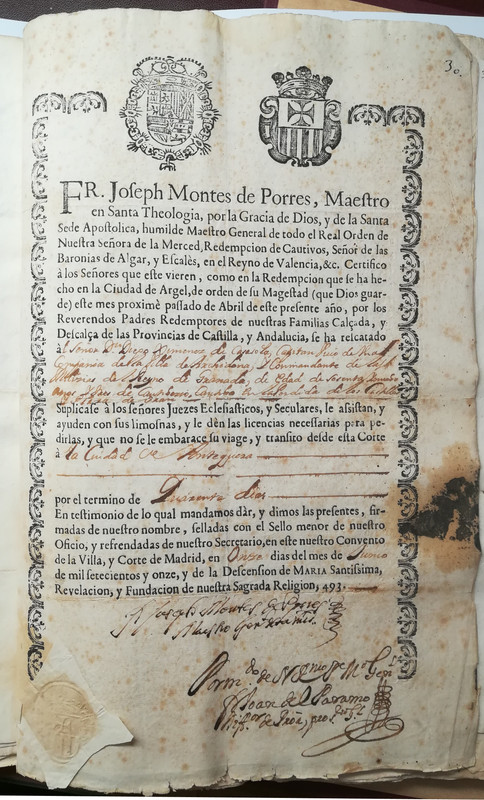 30.
FR. Joseph Montes de Porres, Maestro
en Santa Theologia, por la Gracia de Dios, y de la Santa
Sede Apostolica, humilde Maestro General de todo el Real Orden de
Nuestra Señora de la Merced, Redempcion de Cautivos, Señor de las
Baronias de Algar, y Escalès, en el Reyno de Valencia, &c. Certifico
à los Señores que este vieren, como en la Redempcion que se ha he-
cho en la Ciudad de Argel, de orden de su Magestad (que Dios guar-
de) este mes proximè passado de Abril de este presente año, por los
Reverendos Padres Redemptores de nuestras Familias Calçada, y
Descalça de las Provincias de Castilla, y Andalucia, se ha rescatado
al Señor Dn Diego Ximenez de Capitan
Compañia de la Villa de Archidona, y Commandante de las
Milicias del Reyno de Granada, de edad de
años
Suplicase à los señores Juezes Eclesiasticos, y Seculares, le assistan, y
ayuden con sus limosnas, y le dèn las licencias necessarias para pe-
dirlas, y que no se le embarace su viage, y transito desde esta Corte
à la Ciudad de Antequera
por el termino de Quarenta dias
En testimonio de lo qual mandamos dàr, y dimos las presentes, fir-
madas de nuestro nombre, selladas con el Sello menor de nuestro
Oficio, y refrendadas de nuestro Secretario, en este nuestro Convento
de la Villa, y Corte de Madrid, en Onze dias del mes de Junio
de mil setecientos y onze, y de la Descension de MARIA Santissima,
Revelacion, y Fundacion de nuestra Sagrada Religion, 493.
Fr Joseph Montes de Porres
Maestro Genl
Por mdo de N.
Fr Joan de Paramo